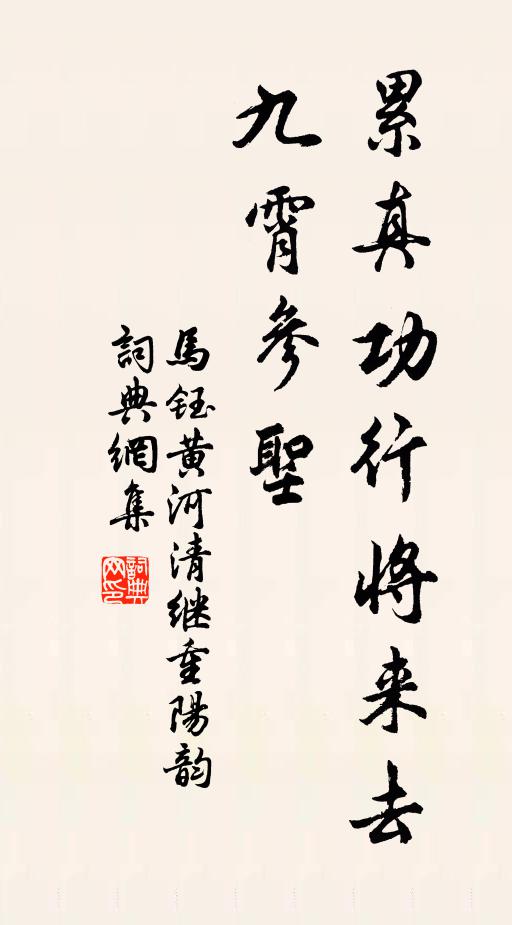 累真功行將来去
九霄參聖
馬鈺黄河清继重陽韵
詞典網集
詞典
网印